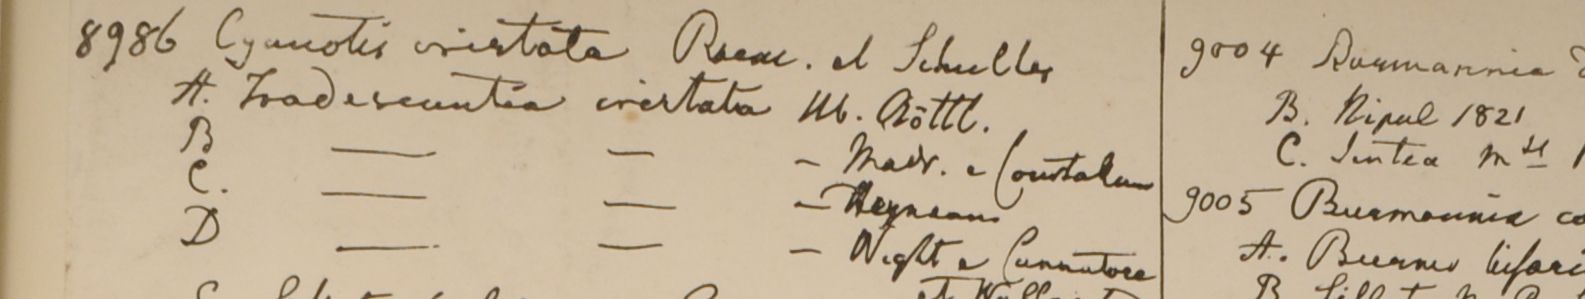 8986 Cyanotis cristata Roem. et Schultes
A. Tradescantia cristata Hb. Röttl.
B — — — Madr. e Courtalum
C. — — — Heyneana
D — — — Wight e Cunnatore
et Wall
9004 Burmannia
B. Nipal 1821
C. Sintea mts
9005 Burmannia co
A. Burma bifari
B. Sillet